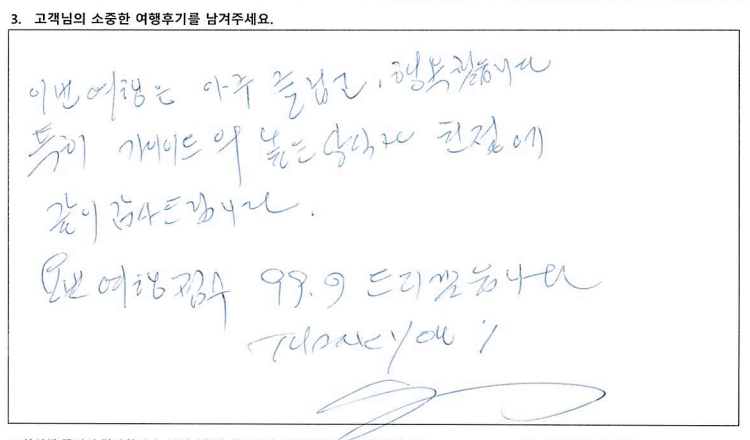 3. 고객님의 소중한 여행후기를 남겨주세요.
이번여행은 아주 즐겁고, 행복했습니다
특히 가이이드의 높은 상식과 친절에
같이 감사드립니다.
요번 여행점수 99.9 드리겠습니다
Thank you!